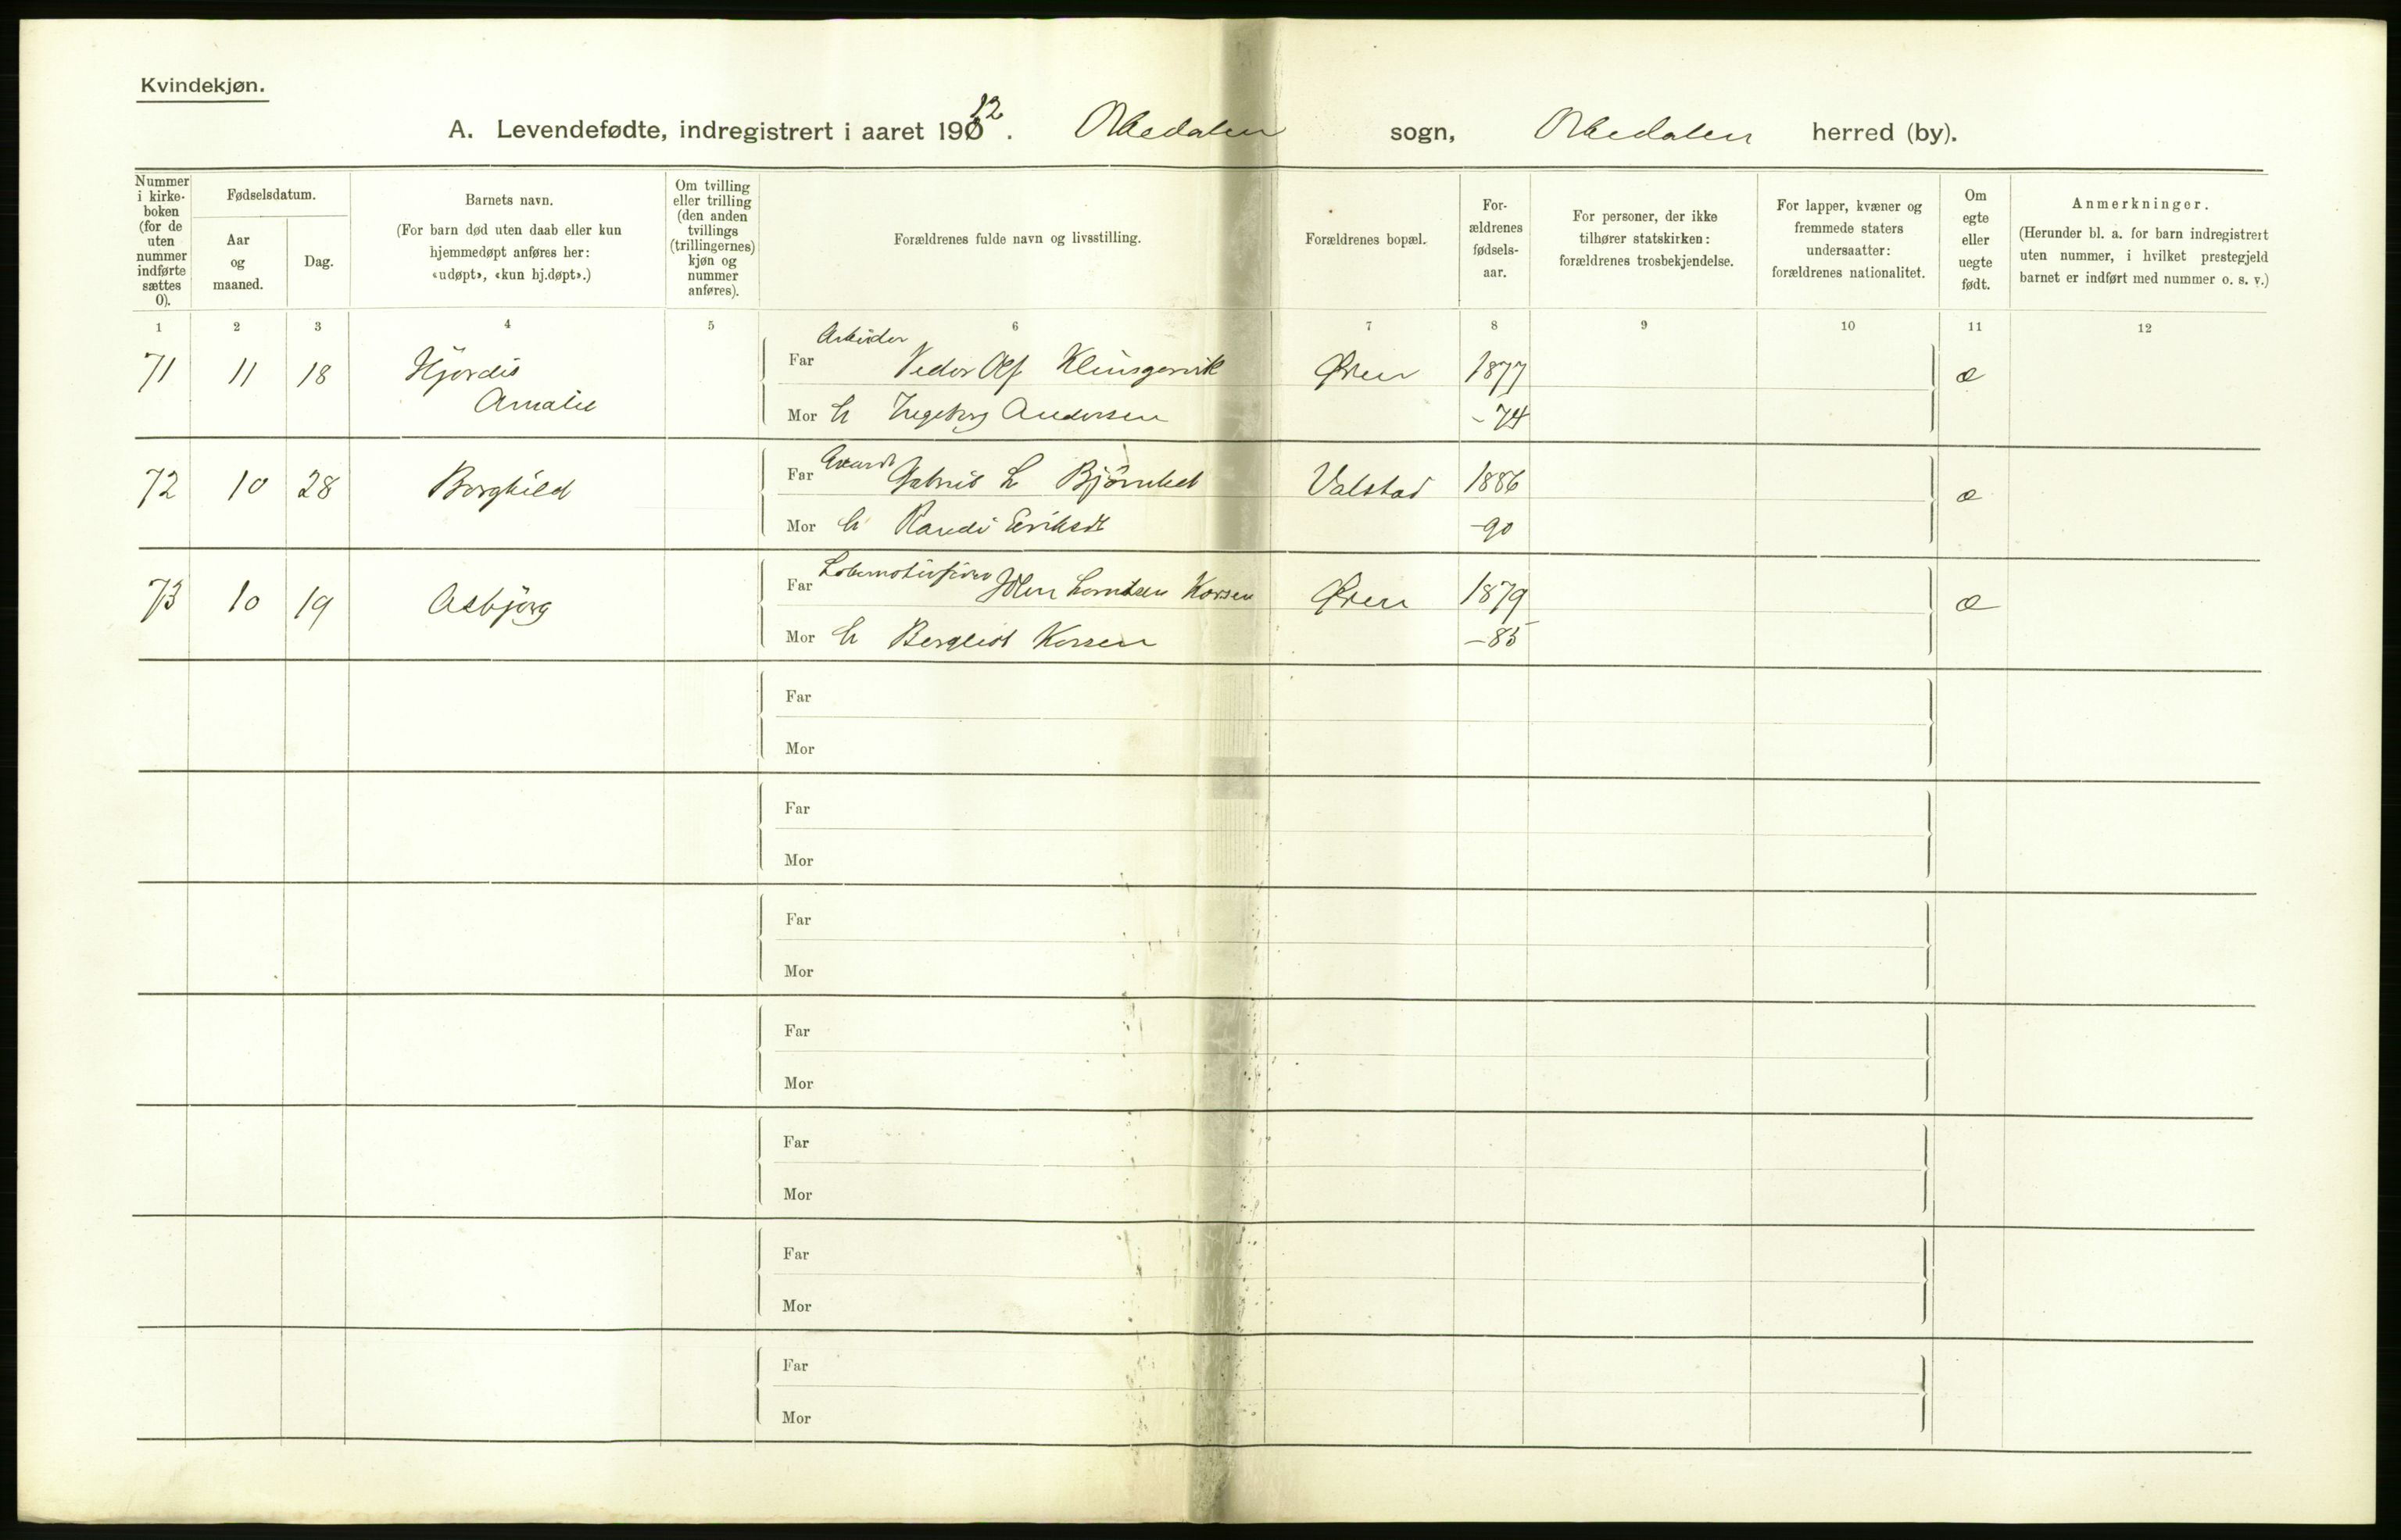 Kvindekjøn.
A. Levendefødte, indregistrert i aaret 1912. Orkedalen sogn, Orkedalen herred (by).
Nummer
i kirke-
boken
(for de
uten
nummer
indførte
sættes
0).
Fødselsdatum.
Aar
og
maaned.
Dag.
Barnets navn.
(For barn død uten daab eller kun
hjemmedøpt anføres her:
«udøpt», «kun hj.døpt».)
Om tvilling
eller trilling
(den anden
tvillings
(trillingernes)
kjøn og
nummer
anføres).
Forældrenes fulde navn og livsstilling.
Forældrenes bopæl.
For-
ældrenes
fødsels-
aar.
For personer, der ikke
tilhører statskirken:
forældrenes trosbekjendelse.
For lapper, kvæner og
fremmede staters
undersaatter:
forældrenes nationalitet.
Om
egte
eller
uegte
født.
Anmerkninger.
(Herunder bl. a. for barn indregistrert
uten nummer, i hvilket prestegjeld
barnet er indført med nummer o. s. v.)
1 2 3 4 5 6 7 8 9 10 11 12
Arbeider
71 11 18 Hjørdis Far Vedor Olf Øren 1877 æ
Amalie Mor h Ingeborg Andersen - 74
72 10 28 Borghild Far Gabriel L Valstad 1886 æ
Mor h Randi - 90
73 10 19 Asbjørg Far Lokomotivfører Korsen Øren 1879 æ
Mor h Bergliot Korsen - 85
Far
Mor
Far
Mor
Far
Mor
Far
Mor
Far
Mor
Far
Mor
Far
Mor